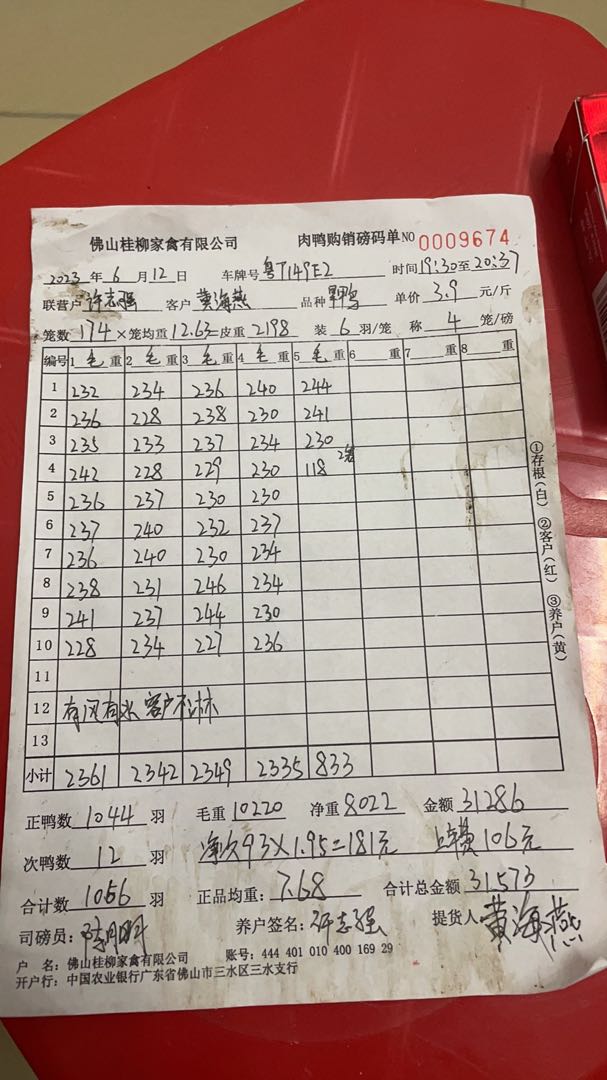 佛山桂柳家禽有限公司 肉鸭购销磅码单 NO 0009674
2023 年 6 月 12 日 车牌号 粤T149E2 时间 19:30至20:37
联营户 许志强 客户 黄海燕 品种 单价 3.9 元/斤
笼数 174 ×笼均重 12.63=皮重 2198 装 6 羽/笼 称 4 笼/磅
编号 1 毛 重 2 毛 重 3 毛 重 4 毛 重 5 毛 重 6 重 7 重 8 重
1 232 234 236 240 244
2 236 228 238 230 241
3 235 233 237 234 230
4 242 228 229 230 118 2笼
5 236 237 230 230
6 237 240 232 237
7 236 240 230 234
8 238 231 246 234
9 241 237 244 230
10 228 234 227 236
11
12 有风有水 客户不淋
13
小计 2361 2342 2349 2335 833
正鸭数 1044 羽 毛重 10220 净重 8022 金额 31286
次鸭数 12 羽 净次93×1.95=181元 106元
合计数 1056 羽 正品均重: 7.68 合计总金额 31573
司磅员: 养户签名: 许志强 提货人 黄海燕
户 名: 佛山桂柳家禽有限公司 账号: 444 401 010 400 169 29
开户行: 中国农业银行广东省佛山市三水区三水支行
①存根(白) ②客户(红) ③养户(黄)